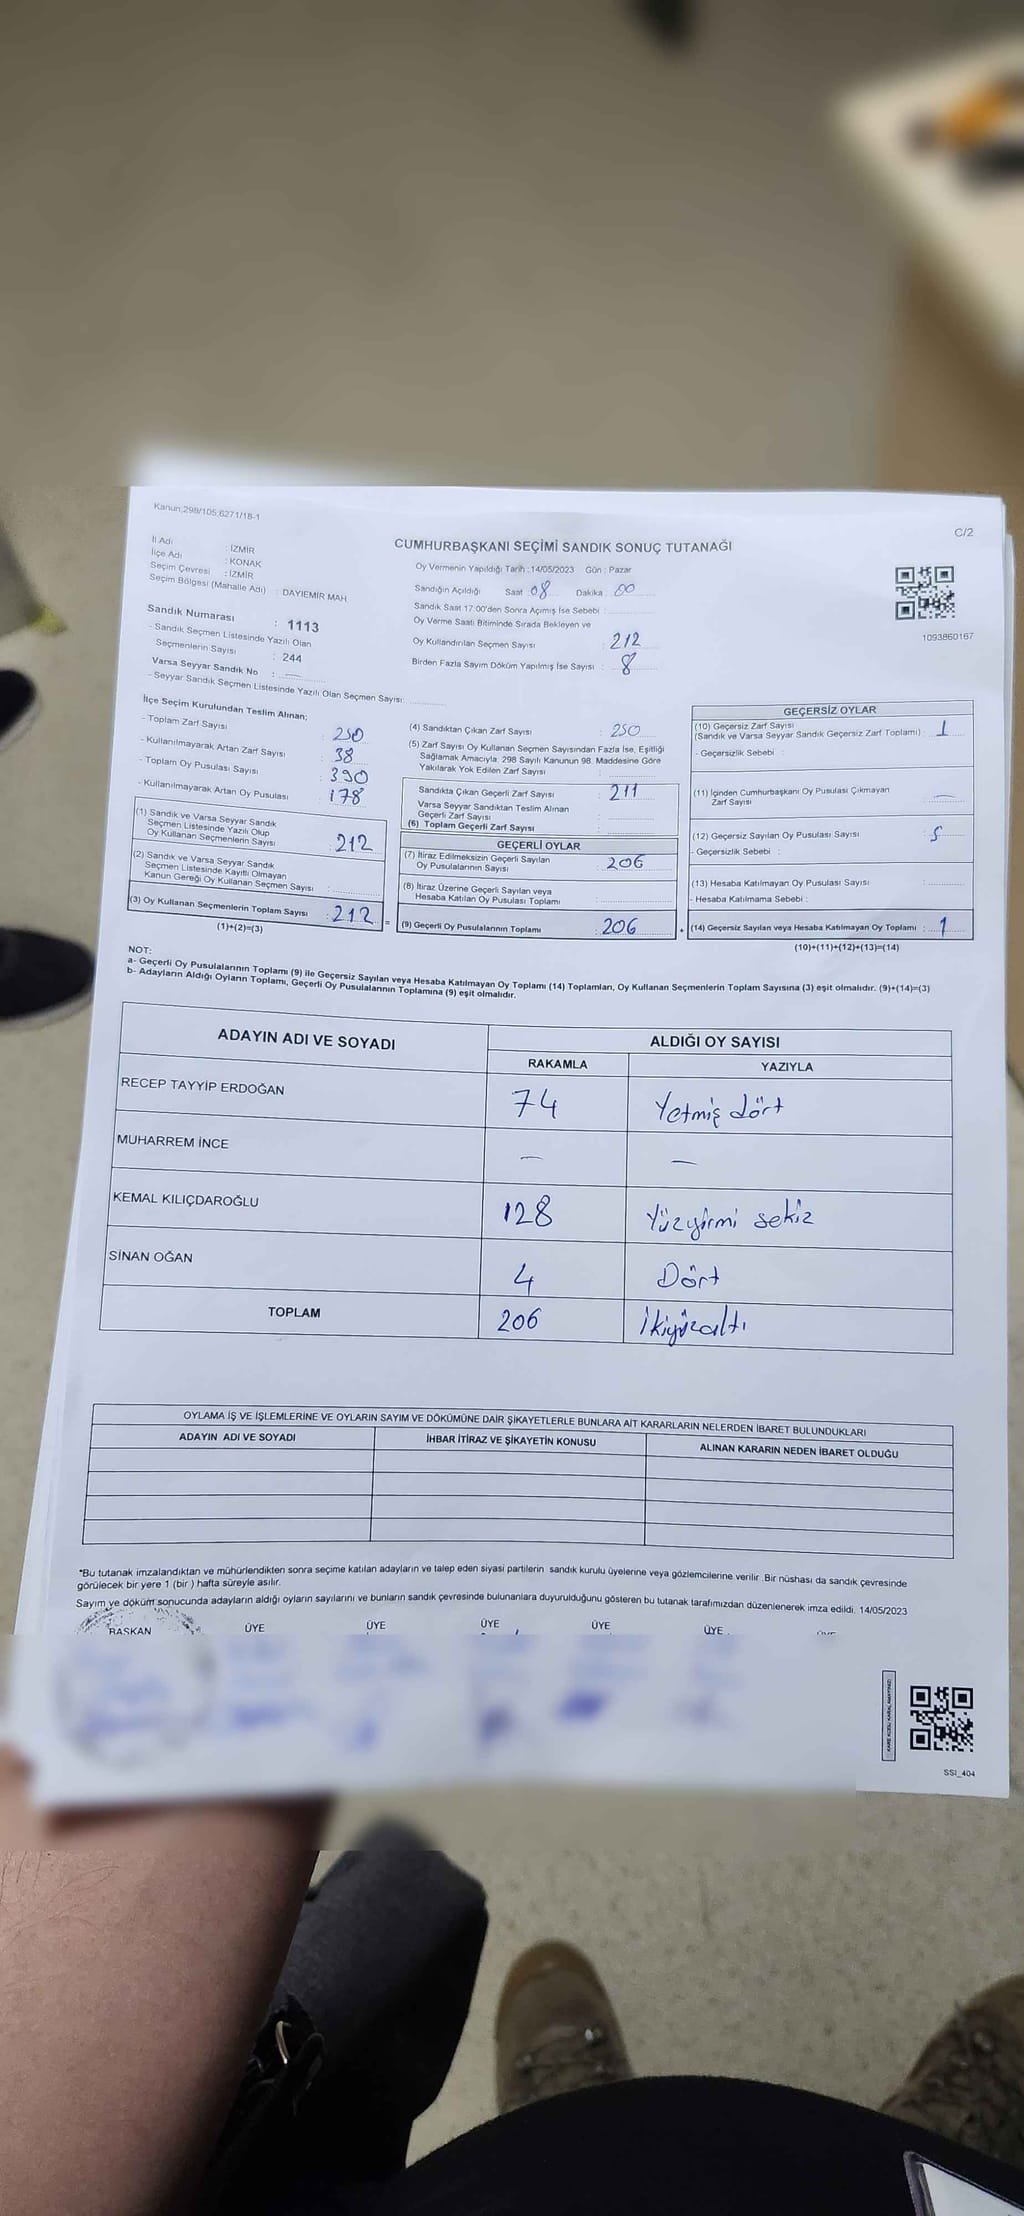 Kanun,298/105,6271/18-1
C/2
CUMHURBAŞKANI SEÇİMİ SANDIK SONUÇ TUTANAĞI
İl Adı : İZMİR
İlçe Adı : KONAK
Seçim Çevresi : İZMİR
Seçim Bölgesi (Mahalle Adı) : DAYIEMİR MAH.
Sandık Numarası : 1113
- Sandık Seçmen Listesinde Yazılı Olan
Seçmenlerin Sayısı : 244
Varsa Seyyar Sandık No : —
- Seyyar Sandık Seçmen Listesinde Yazılı Olan Seçmen Sayısı:
Oy Vermenin Yapıldığı Tarih :14/05/2023 Gün : Pazar
Sandığın Açıldığı Saat 08 Dakika : 00
Sandık Saat 17:00'den Sonra Açımış İse Sebebi :
Oy Verme Saati Bitiminde Sırada Bekleyen ve
Oy Kullandırılan Seçmen Sayısı : 212
Birden Fazla Sayım Döküm Yapılmış İse Sayısı : 8
1093860167
İlçe Seçim Kurulundan Teslim Alınan;
- Toplam Zarf Sayısı : 250
- Kullanılmayarak Artan Zarf Sayısı : 38
- Toplam Oy Pusulası Sayısı : 390
- Kullanılmayarak Artan Oy Pusulası : 178
(1) Sandık ve Varsa Seyyar Sandık
Seçmen Listesinde Yazılı Olup
Oy Kullanan Seçmenlerin Sayısı : 212
(2) Sandık ve Varsa Seyyar Sandık
Seçmen Listesinde Kayıtlı Olmayan
Kanun Gereği Oy Kullanan Seçmen Sayısı :
(3) Oy Kullanan Seçmenlerin Toplam Sayısı : 212
(1)+(2)=(3)
=
(4) Sandıktan Çıkan Zarf Sayısı : 250
(5) Zarf Sayısı Oy Kullanan Seçmen Sayısından Fazla İse, Eşitliği
Sağlamak Amacıyla; 298 Sayılı Kanunun 98. Maddesine Göre
Yakılarak Yok Edilen Zarf Sayısı :
Sandıkta Çıkan Geçerli Zarf Sayısı : 211
Varsa Seyyar Sandıktan Teslim Alınan
Geçerli Zarf Sayısı :
(6) Toplam Geçerli Zarf Sayısı :
GEÇERLİ OYLAR
(7) İtiraz Edilmeksizin Geçerli Sayılan
Oy Pusulalarının Sayısı : 206
(8) İtiraz Üzerine Geçerli Sayılan veya
Hesaba Katılan Oy Pusulası Toplamı :
(9) Geçerli Oy Pusulalarının Toplamı : 206
+
GEÇERSİZ OYLAR
(10) Geçersiz Zarf Sayısı
(Sandık ve Varsa Seyyar Sandık Geçersiz Zarf Toplamı) : 1
- Geçersizlik Sebebi :
(11) İçinden Cumhurbaşkanı Oy Pusulası Çıkmayan
Zarf Sayısı : —
(12) Geçersiz Sayılan Oy Pusulası Sayısı : 5
- Geçersizlik Sebebi :
(13) Hesaba Katılmayan Oy Pusulası Sayısı :
- Hesaba Katılmama Sebebi :
(14) Geçersiz Sayılan veya Hesaba Katılmayan Oy Toplamı : 1
(10)+(11)+(12)+(13)=(14)
NOT:
a- Geçerli Oy Pusulalarının Toplamı (9) ile Geçersiz Sayılan veya Hesaba Katılmayan Oy Toplamı (14) Toplamları, Oy Kullanan Seçmenlerin Toplam Sayısına (3) eşit olmalıdır. (9)+(14)=(3)
b- Adayların Aldığı Oyların Toplamı, Geçerli Oy Pusulalarının Toplamına (9) eşit olmalıdır.
ADAYIN ADI VE SOYADI ALDIĞI OY SAYISI
RAKAMLA YAZIYLA
RECEP TAYYİP ERDOĞAN 74 Yetmiş dört
MUHARREM İNCE — —
KEMAL KILIÇDAROĞLU 128 Yüzyirmi sekiz
SİNAN OĞAN 4 Dört
TOPLAM 206 İkiyüzaltı
OYLAMA İŞ VE İŞLEMLERİNE VE OYLARIN SAYIM VE DÖKÜMÜNE DAİR ŞİKAYETLERLE BUNLARA AİT KARARLARIN NELERDEN İBARET BULUNDUKLARI
ADAYIN ADI VE SOYADI İHBAR İTİRAZ VE ŞİKAYETİN KONUSU ALINAN KARARIN NEDEN İBARET OLDUĞU
*Bu tutanak imzalandıktan ve mühürlendikten sonra seçime katılan adayların ve talep eden siyasi partilerin sandık kurulu üyelerine veya gözlemcilerine verilir .Bir nüshası da sandık çevresinde
görülecek bir yere 1 (bir ) hafta süreyle asılır.
Sayım ve döküm sonucunda adayların aldığı oyların sayılarını ve bunların sandık çevresinde bulunanlara duyurulduğunu gösteren bu tutanak tarafımızdan düzenlenerek imza edildi. 14/05/2023
BAŞKAN ÜYE ÜYE ÜYE ÜYE ÜYE
KARE KODU KARALAMAYINIZ!
SSI_404